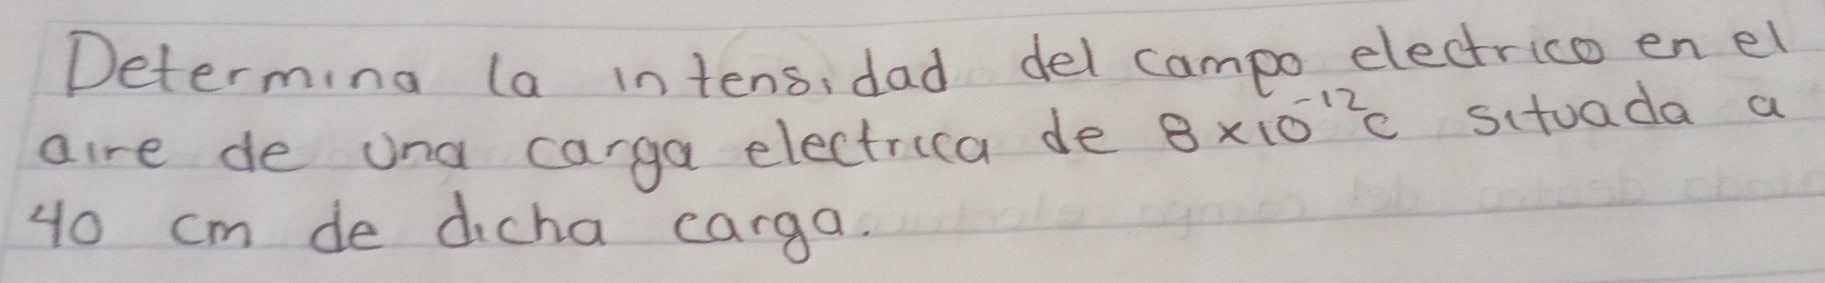 Determina la intensidad del campo electrico en el
aire de una carga electrica de 8x10⁻¹²c situada a
40 cm de dicha carga.